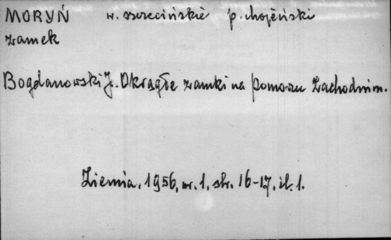 MORYŃ w. szczecińskie p. chojeński
zamek
Bogdanowski J. Okrągłe zamki na Pomorzu Zachodnim.
Ziemia, 1956, nr. 1, str. 16-17, il. 1.